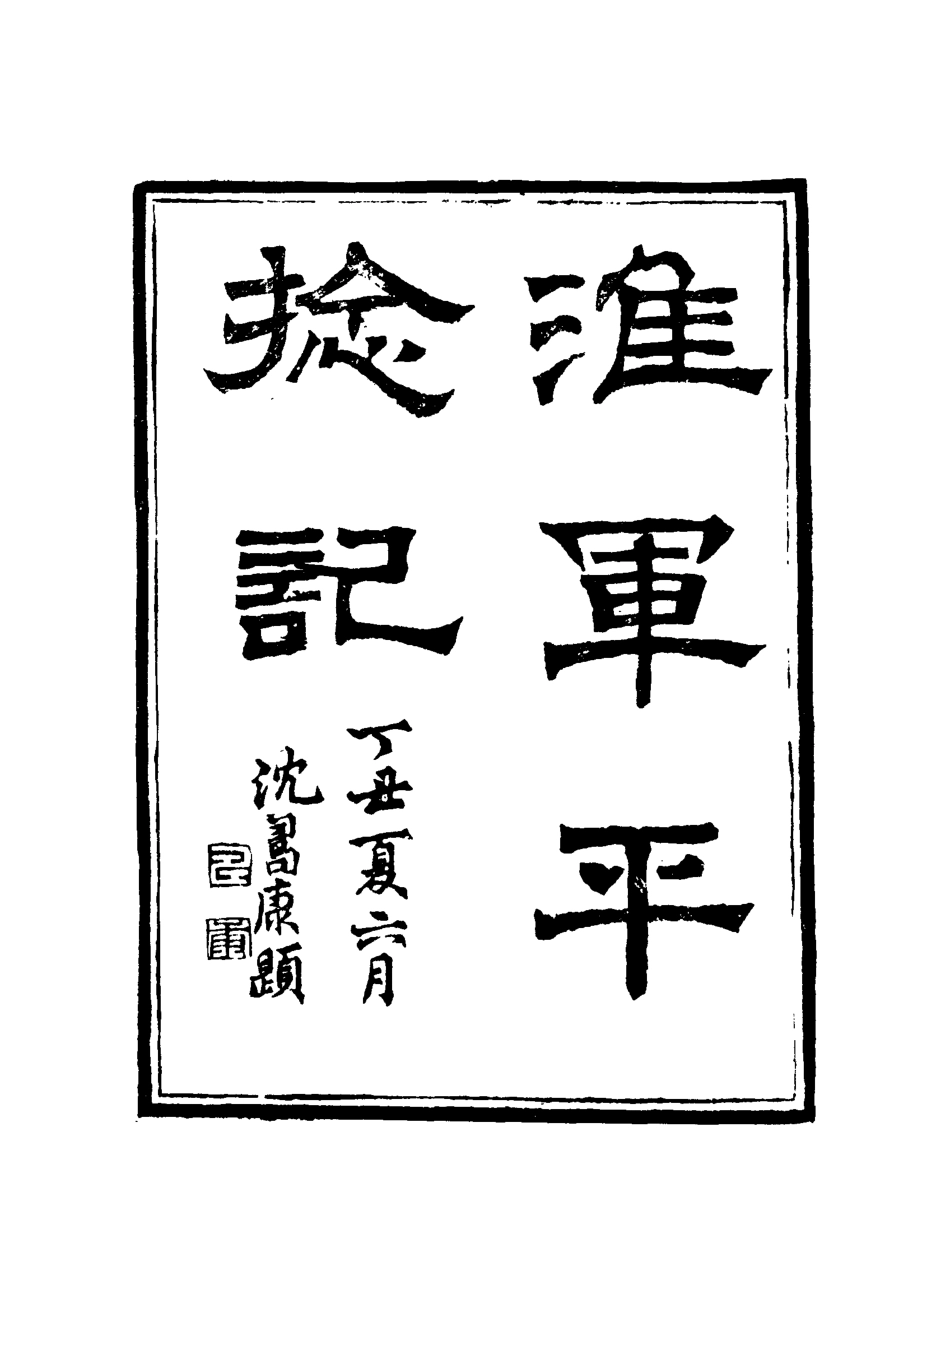 淮軍平
捻記
丁丑夏六月
沈景康題